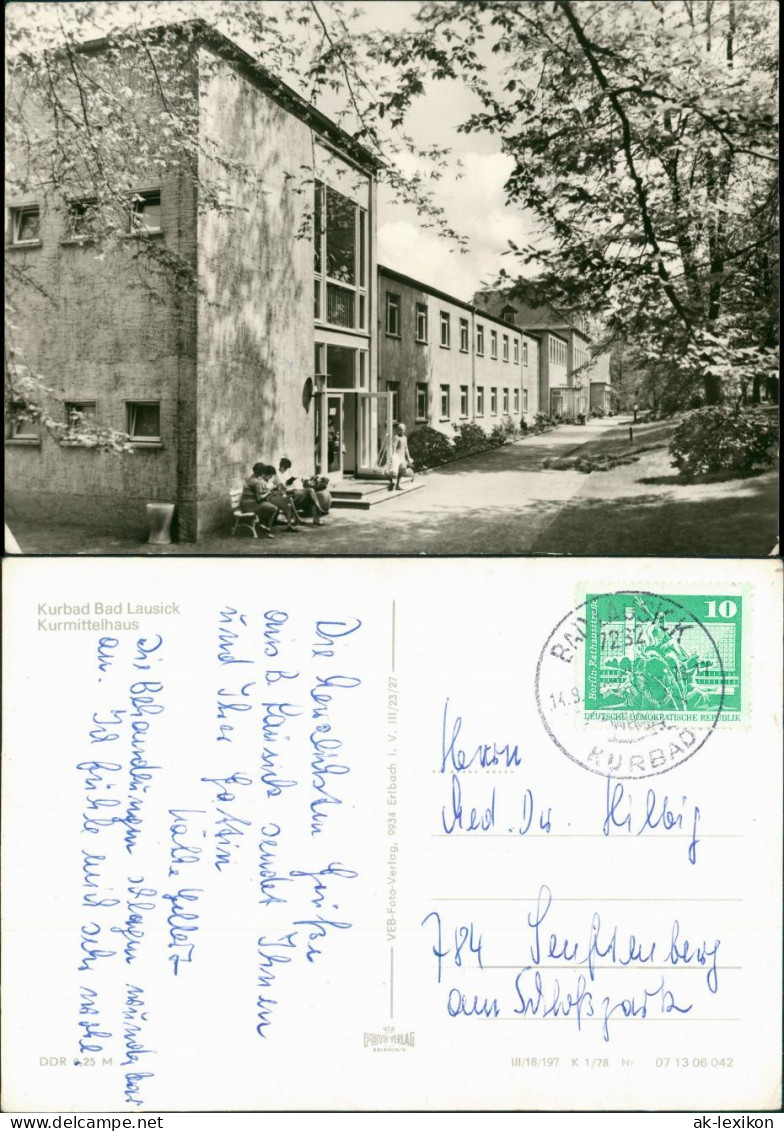 Kurbad Bad Lausick
Kurmittelhaus
Die herzlichsten Grüße
aus B. Lausick sendet Ihnen
und Ihrer Gattin
Die Behandlungen schlagen wunderbar
an. Ich fühle mich sehr wohl.
VEB-Foto-Verlag, 9934 Erlbach i. V. III/23/27
10
Berlin-Rathausstraße
DEUTSCHE DEMOKRATISCHE REPUBLIK
BAD LAUSICK
7232
14.9.
KURBAD
Herrn
Med. Dr. Hilbig
784 Senftenberg
am Schloßpark
FOTO-VERLAG
DDR 0,25 M
III/18/197 K 1/78 Nr 07 13 06 042
ansichtskarten-lexikon.de
ak-lexikon.com